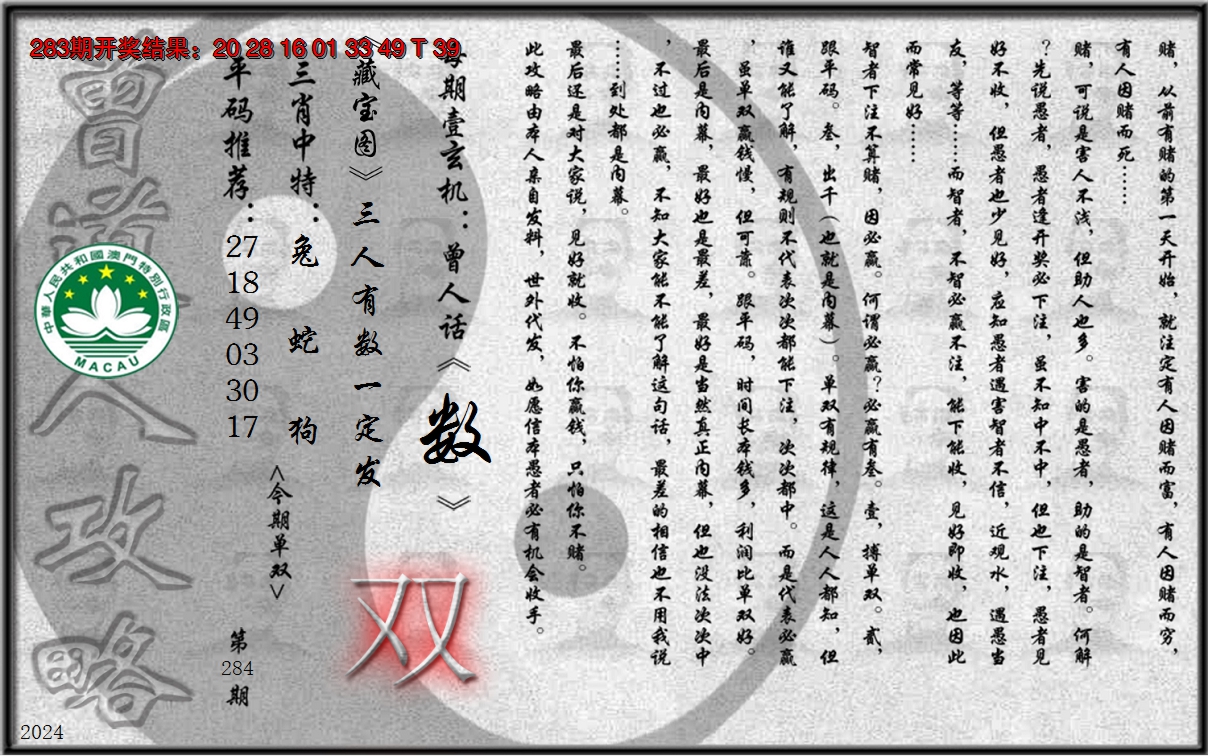 283期开奖结果：20 28 16 01 33 49 T 39
赌，从前有赌的第一天开始，就注定有人因赌而富，有人因赌而穷，
有人因赌而死……
赌，可说是害人不浅，但助人也多。害的是愚者，助的是智者。何解
？先说愚者，愚者逢开奖必下注，虽不知中不中，但也下注，愚者见
好不收，但愚者也少见好，应知愚者遇害智者不信，近观水，遇愚当
友，等等……而智者，不智必赢不注，能下能收，见好即收，也因此
而常见好……
智者下注不算赌，因必赢。何谓必赢？必赢有叁。壹，搏单双。贰，
跟平码。叁，出千（也就是内幕）。单双有规律，这是人人都知，但
谁又能了解，有规则不代表次次都能下注，次次都中。而是代表必赢
，虽单双赢钱慢，但可靠。跟平码，时间长本钱多，利润比单双好。
最后是内幕，最好也是最差，最好是当然真正内幕，但也没法次次中
，不过也必赢，不知大家能不能了解这句话，最差的相信也不用我说
……到处都是内幕。
最后还是对大家说，见好就收。不怕你赢钱，只怕你不赌。
此攻略由本人亲自发料，世外代发，如愿信本愚者必有机会收手。
每期壹玄机：曾人话《数》
《藏宝图》三人有数一定发
双
三肖中特：兔 蛇 狗
<今期单双>
平码推荐：
27
18
49
03
30
17
第
284
期
曾道人攻略
中華人民共和國澳門特別行政區
MACAU
2024